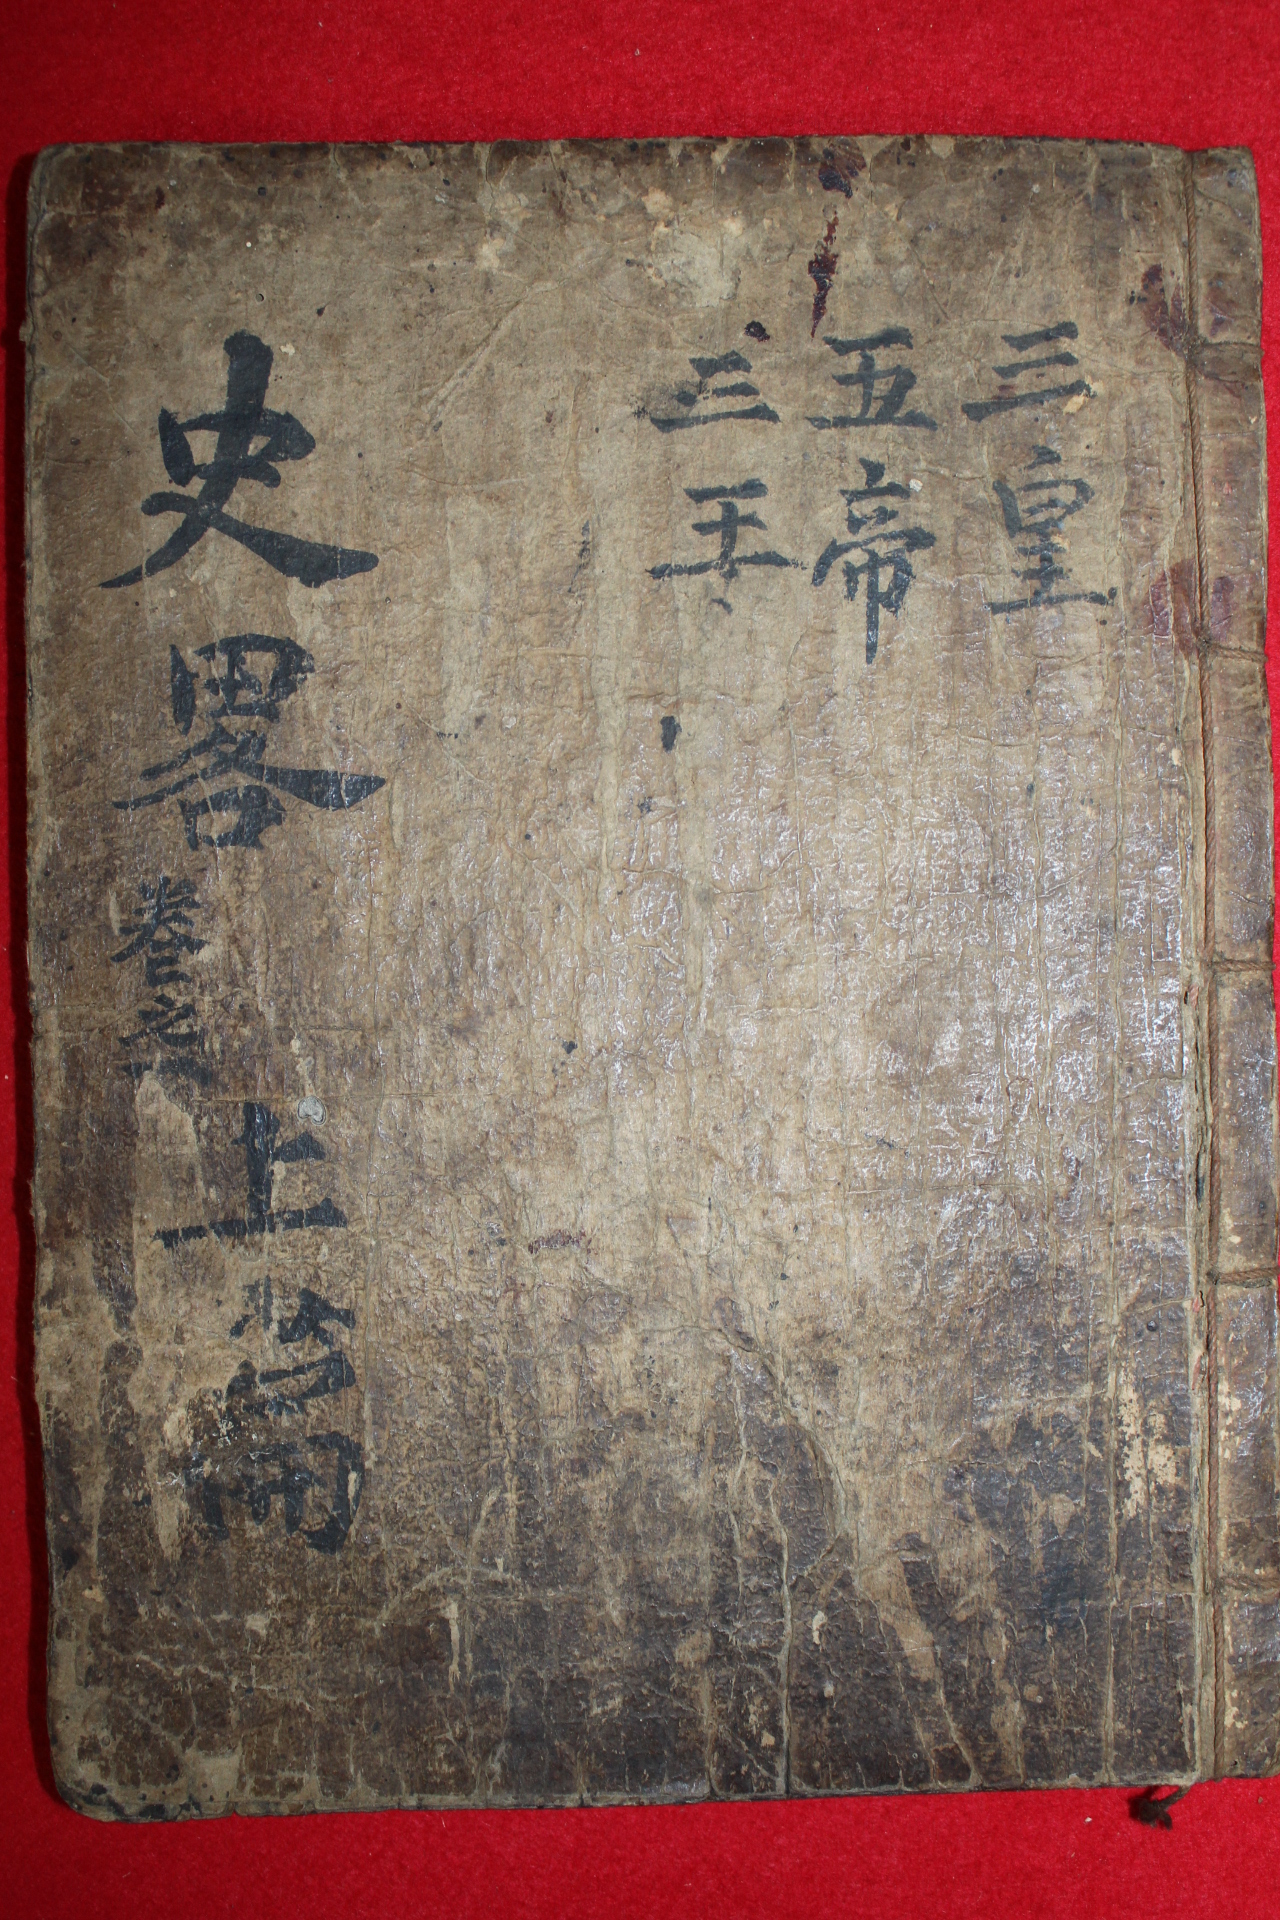 三皇
五帝
三王
史畧
卷之
上篇